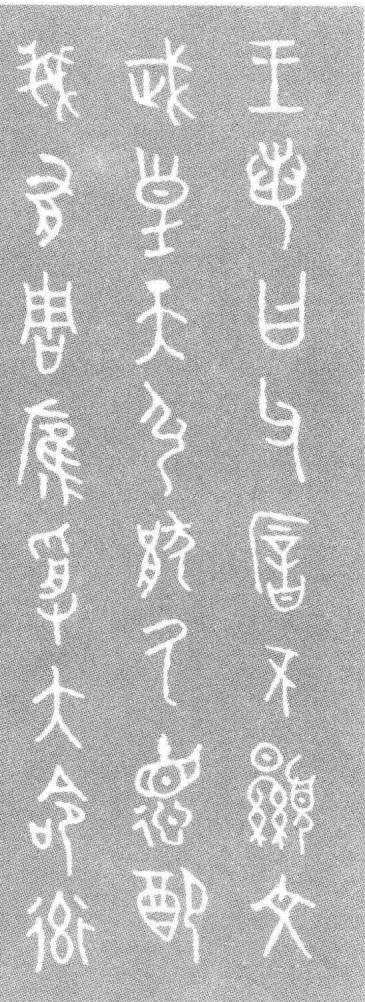 王若曰父厝不顯文
武皇天引猒氒德配
我有周雁受大命率